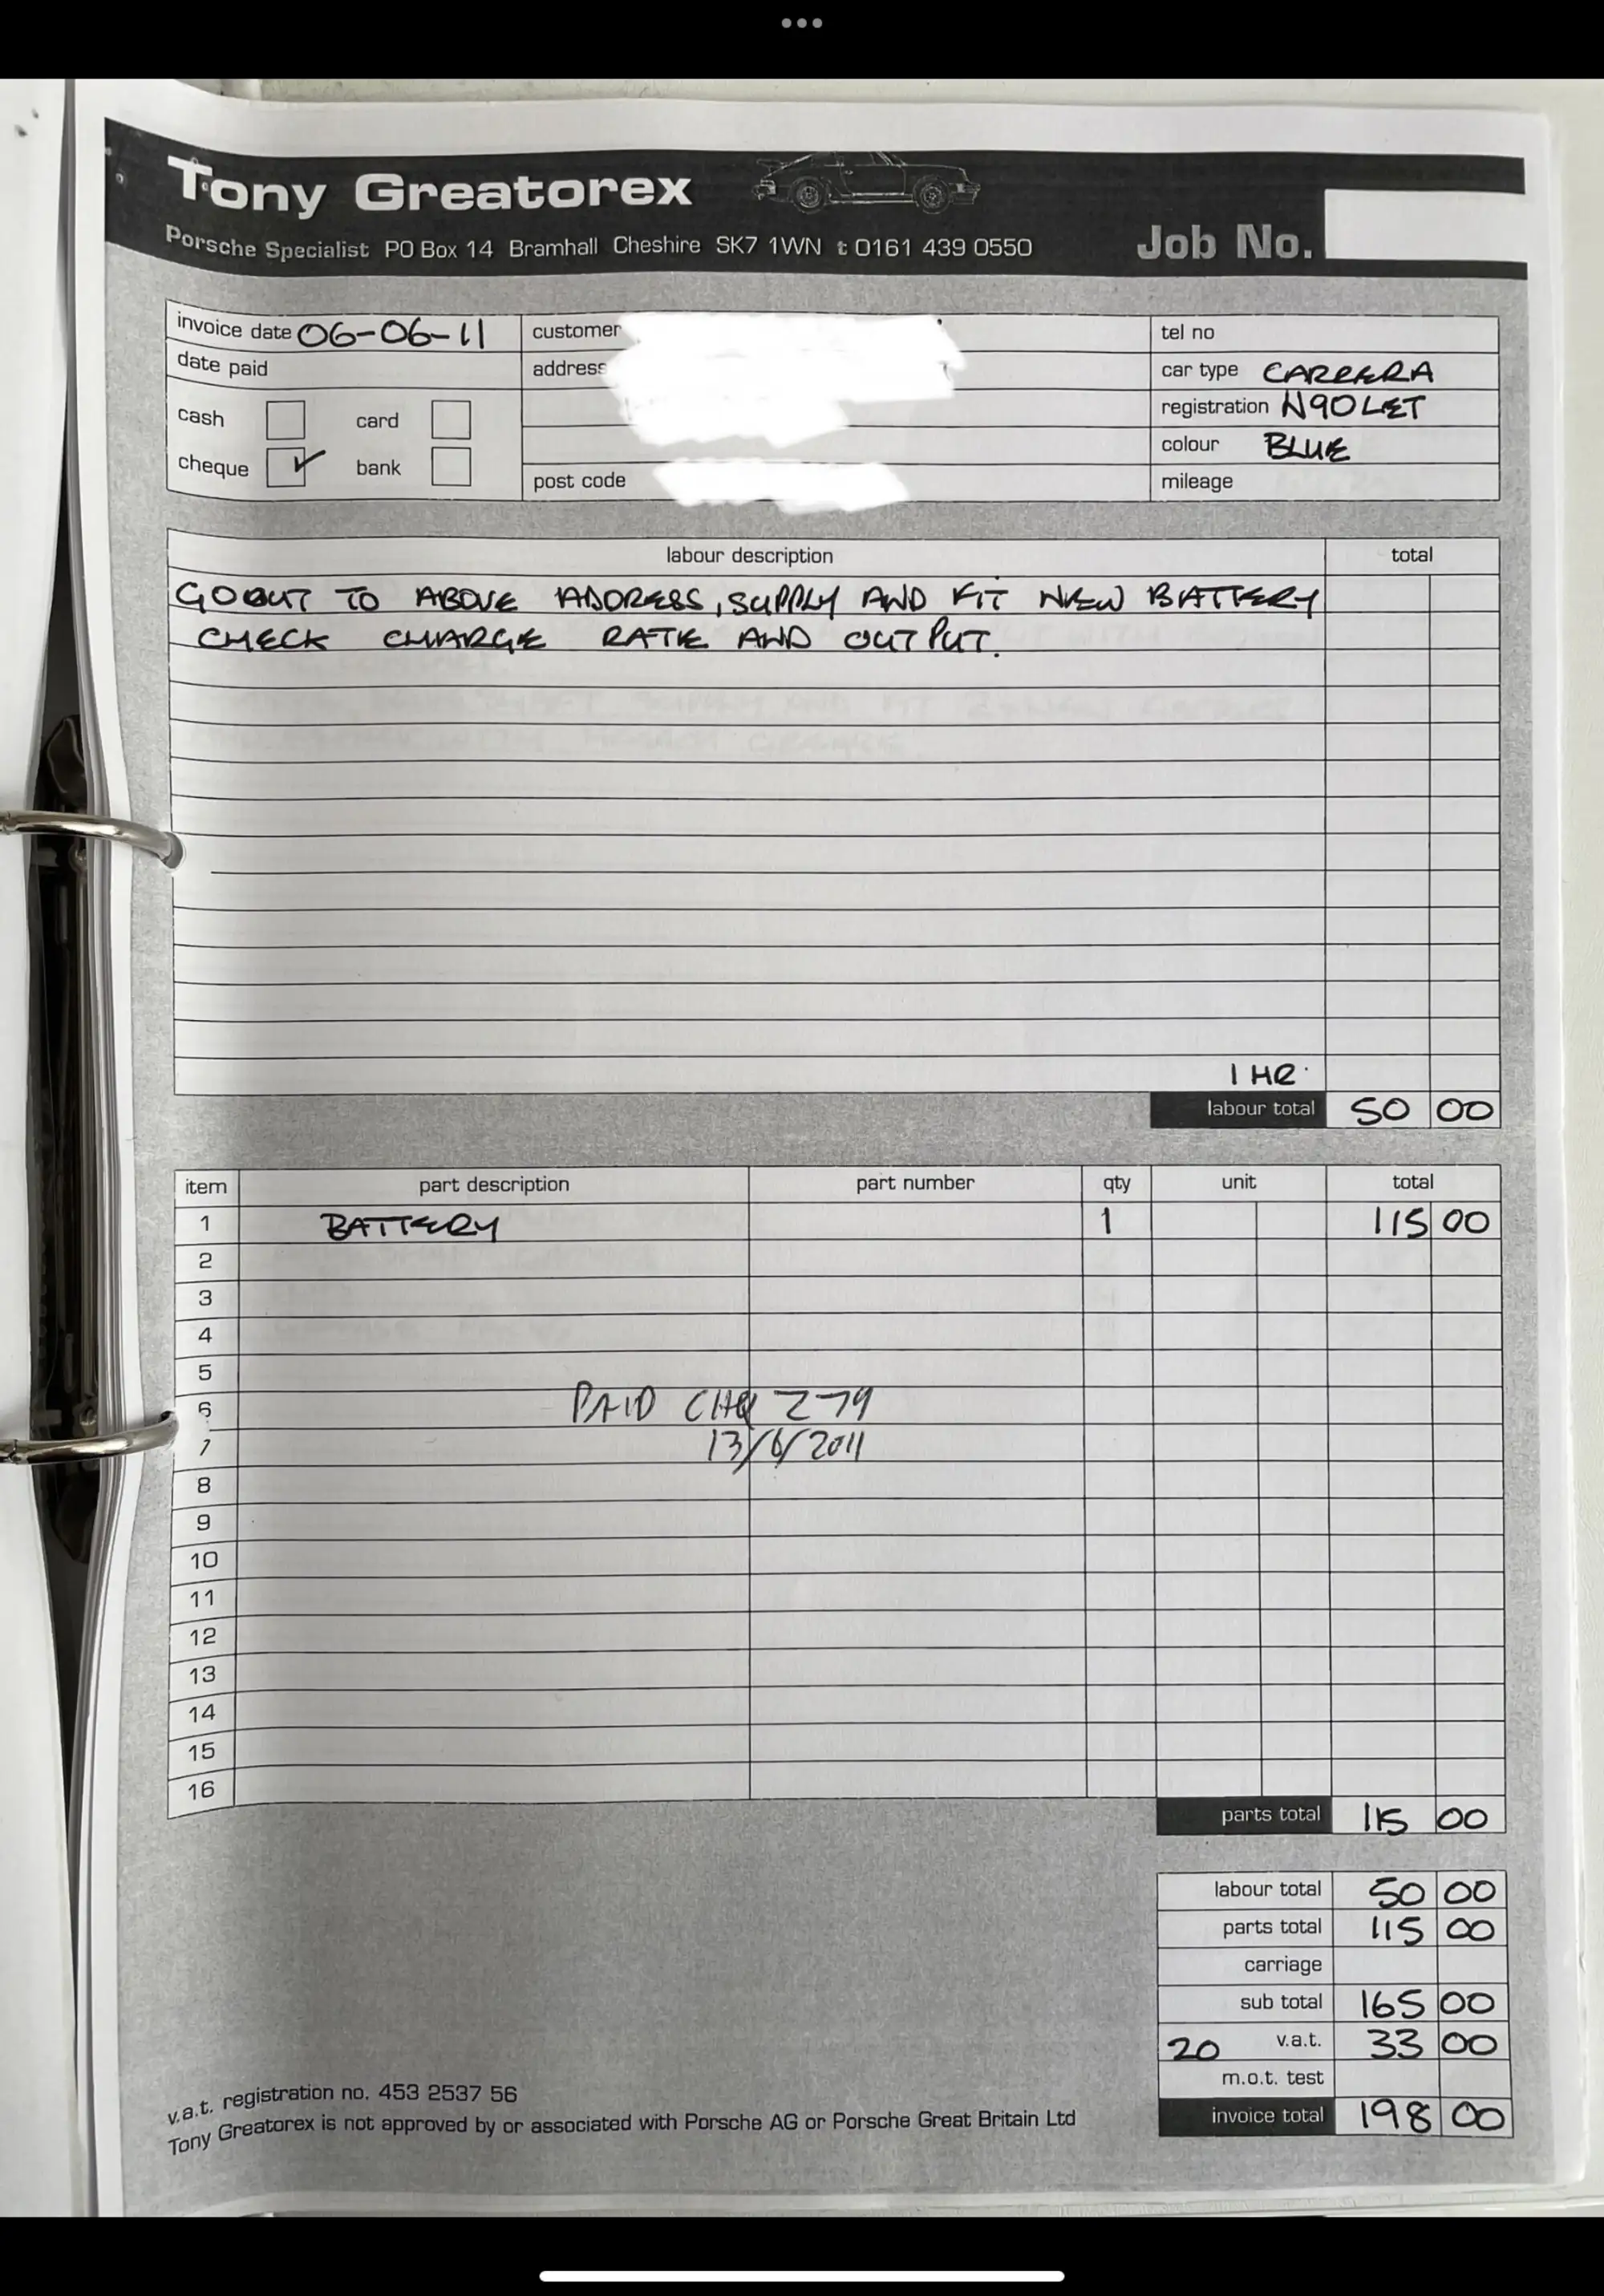 Tony Greatorex
Porsche Specialist PO Box 14 Bramhall Cheshire SK7 1WN t 0161 439 0550
Job No.
invoice date 06-06-11
date paid
cash card
cheque bank
customer
address
post code
tel no
car type CARRERA
registration N90LET
colour BLUE
mileage
labour description total
GO OUT TO ABOVE ADDRESS, SUPPLY AND FIT NEW BATTERY
CHECK CHARGE RATE AND OUTPUT.
1 HR.
labour total 50 00
item part description part number qty unit total
1 BATTERY 1 115 00
2
3
4
5
6 PAID CHQ 279
7 13/6/2011
8
9
10
11
12
13
14
15
16
parts total 115 00
labour total 50 00
parts total 115 00
carriage
sub total 165 00
20 v.a.t. 33 00
m.o.t. test
invoice total 198 00
v.a.t. registration no. 453 2537 56
Tony Greatorex is not approved by or associated with Porsche AG or Porsche Great Britain Ltd